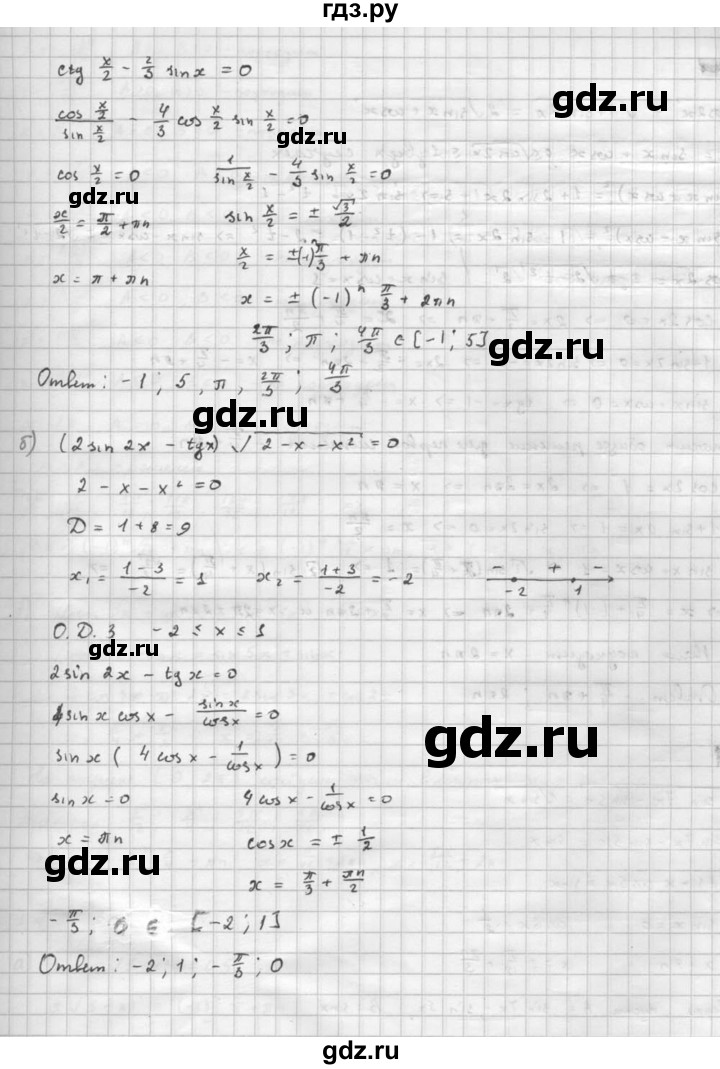 гдз.ру
ctg x/2 - 2/3 sin x = 0
cos x/2 / sin x/2 - 4/3 cos x/2 sin x/2 = 0
cos x/2 = 0    1/sin x/2 - 4/3 sin x/2 = 0
gdz.ru
x/2 = π/2 + πn    sin x/2 = ± √3/2
x/2 = ±(-1)ⁿ π/3 + πn
x = π + πn    x = ± (-1)ⁿ π/3 + 2πn
2π/3 ; π ; 4π/3 ∈ [-1 ; 5]
gdz.ru
Ответ: -1 ; 5 , π , 2π/3 ; 4π/3
gdz.ru
б) (2 sin 2x - tgx) √(2 - x - x²) = 0
2 - x - x² = 0
D = 1 + 8 = 9
x₁ = (1 - 3)/-2 = 1    x₂ = (1 + 3)/-2 = -2    - + -
-2 1
О.Д.З    -2 ≤ x ≤ 1
gdz.ru
2 sin 2x - tg x = 0
4 sin x cos x - sin x/cos x = 0
gdz.ru
sin x ( 4 cos x - 1/cos x ) = 0
sin x = 0    4 cos x - 1/cos x = 0
x = πn    cos x = ± 1/2
gdz.ru
x = π/3 + πn/2
- π/3 ; 0 ∈ [-2 ; 1]
Ответ: -2 ; 1 ; - π/3 ; 0
gdz.ru